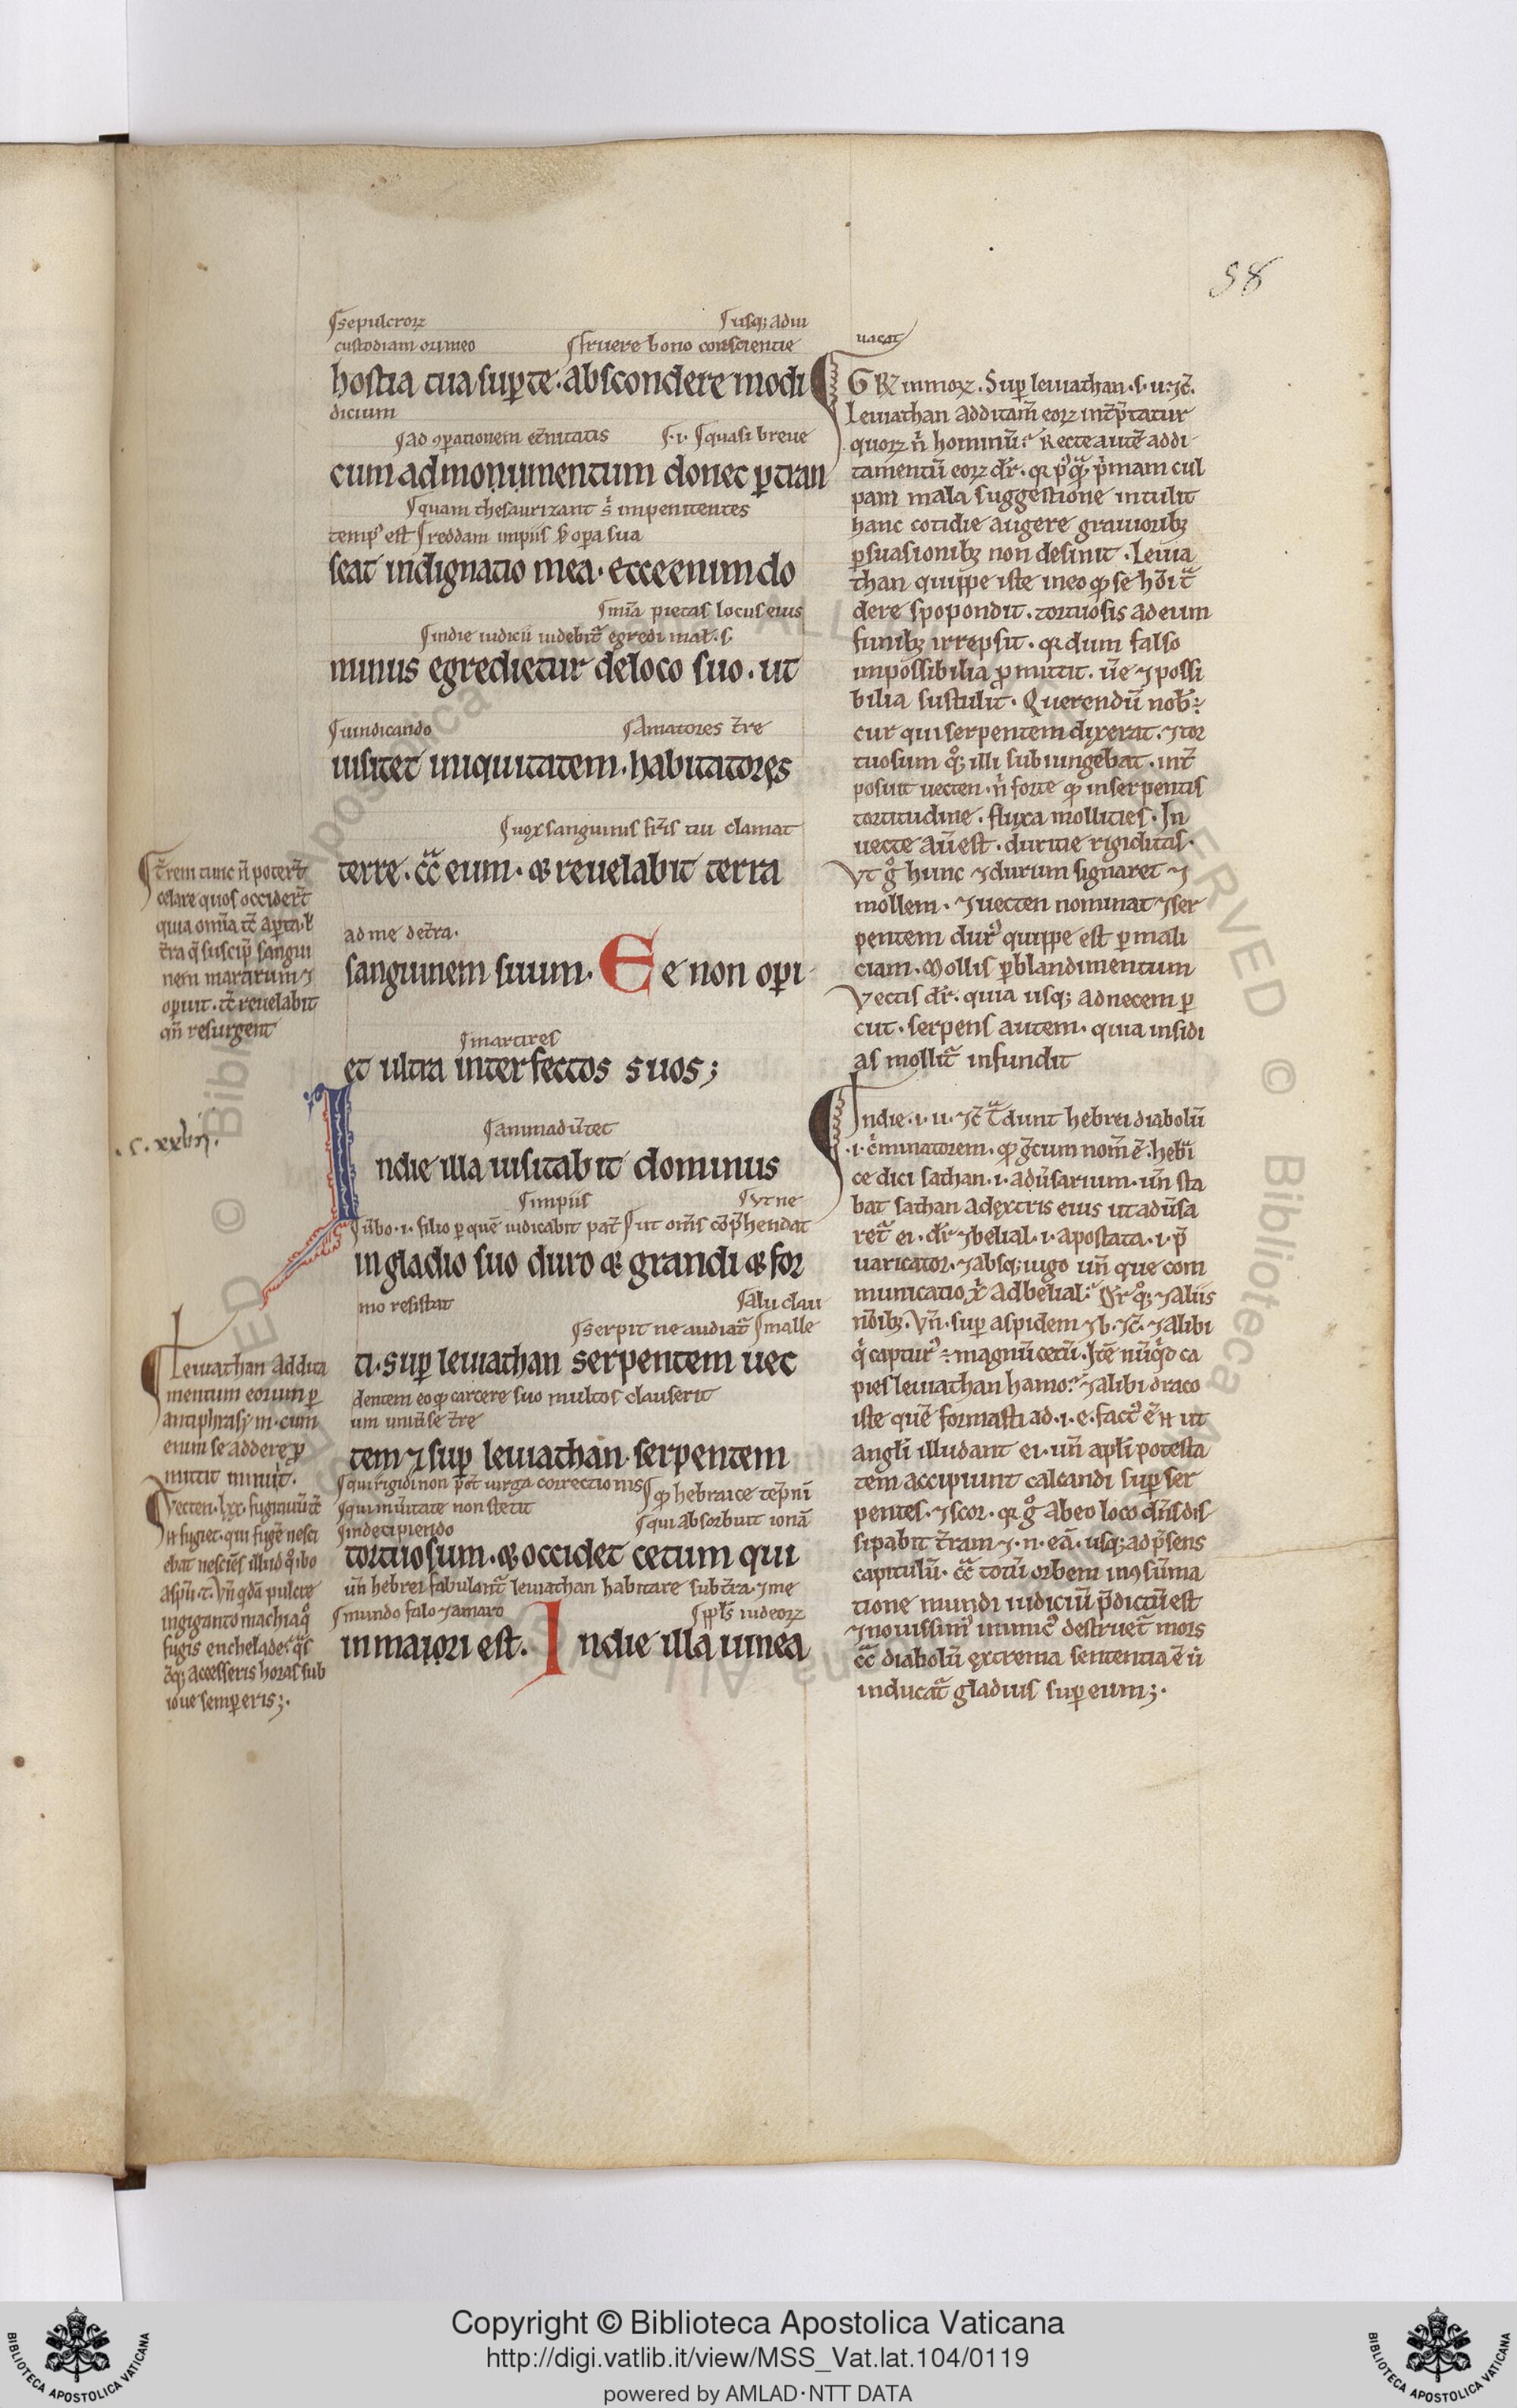 58
sepulcrorz
usq; adiu
custodiam or in eo
fruere bono conscientie
hostia tua sup te. abscondere modi
dicium
ad operationem eternitatis
.i. quasi breue
cum ad monumentum donec ptran
quam thesaurizant s impenitentes
temp est reddam impiis opera sua
seat indignatio mea. ecce enim do
mia pietas locus eius
in die iudicii uidebit egredi
minus egredietur de loco suo. ut
iudicando
Amatores tre
uisitet iniquitatem. habitatores
uox sanguinis fris tui clamat
terre. cc eum. & reuelabit terra
ad me de tra.
sanguinem suum. Et non opi
martires
et ultra interfectos suos;
animaduertet
In die illa uisitabit dominus
impiis
Vt ne
uerbo .i. filio per quem iudicabit pat ut oms comprehendat
in gladio suo duro & grandi & for
mo resistat
aliu clau
serpit ne audiat malle
ti. sup leuiathan serpentem uec
dentem eo quod carcere suo multos clauserit
um uniuerse tre
tem & sup leuiathan serpentem
qui rigidi non pot uirga correctionis
quod hebraice
qui in ueritate non stetit
qui absorbuit iona
in decipiendo
tortuosum. & occidet cetum qui
un hebrei fabulant leuiathan habitare sub tra. & me
mundo falso & amaro
ppls iudeorz
in mari est. In die illa uinea
trem tunc n poterit
celare quos occiderit
quia omia et aperta. ł
tra q suscip sangui
nem martirum &
operuit. reuelabit
qn resurgent
.c. xxvii.
Leuiathan Addita
mentum eorum p
antiphrasim. cum
enim se addere p
mittit minuit.
Vectem. lxx. fugiuitem
fugiet. qui fuge nesci
ebat nesciens illud quo ibo
a spu t. Vn qda pulcre
in giganto machia
fugis enchelade. qs
cq; accesseris horas sub
ioue semper eris;.
uacat
GR in mor. Sup leuiathan. s. u. &c.
Leuiathan additam eorz intptatur
quorz n hominu. Recte aute addi
tamentu eorz dr. qr pq prmam cul
pam mala suggestione intulit
hanc cotidie augere grauiorib;
psuasionib; non desinit. Leuia
than quippe iste in eo quod se hoi t
dere spopondit. tortuosis ad eum
funib; irrepsit. qr dum falso
impossibilia pmittit. ue & possi
bilia sustulit. Querendu nob.
cur qui serpentem dixerat. & tor
tuosum q; illi subiungebat. int
posuit uecten. n forte quod in serpentis
tortitudine. fluxa mollities. In
uecte au est. duritie rigiditas.
Vt g hunc & durum signaret &
mollem. & uecten nominat & ser
pentem dur quippe est p mali
ciam. Mollis p blandimentum
Vectis dr. quia usq; ad necem p
cut. serpens autem. quia insidi
as mollit infundit
In die .i. u. &c. Tdunt hebrei diabolu
.i. criminatorem. grcum nom e. hebri
ce dici sathan .i. aduersarium. un sta
bat sathan a dextris eius ut aduersa
ret ei. dr & belial .i. apostata .i. p
uaricator. & absq; iugo un que com
municatio x ad belial. Fr q; & aliis
noib;. Vn. sup aspidem & b. &c. & alibi
q captur magnu cetu. Ite nuqd ca
pies leuiathan hamo. & alibi draco
iste que formasti ad .i. e. fact e ut
angli illudant ei. un apli potesta
tem accipiunt calcandi sup ser
pentes. & scor. qr g ab eo loco dns dis
sipabit tram & n. ea. usq; ad psens
capitulu. cc totu orbem in consuma
tione mundi iudiciu pdictu est
& nouissim inimic destruet mors
cc diabolu extrema sententia e u
inducat gladius sup eum;.
Copyright © Biblioteca Apostolica Vaticana
http://digi.vatlib.it/view/MSS_Vat.lat.104/0119
powered by AMLAD·NTT DATA
BIBLIOTECA APOSTOLICA VATICANA
BIBLIOTECA APOSTOLICA VATICANA